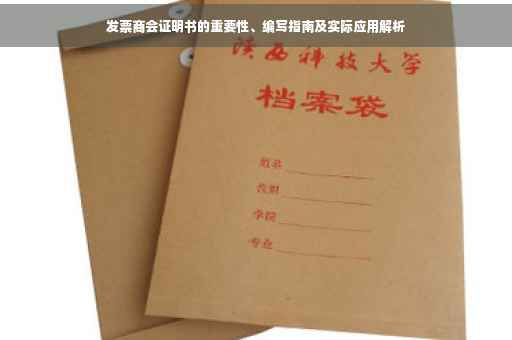 发票商会证明书的重要性、编写指南及实际应用解析
陕西科技大学
档案袋
姓名
学院
专业